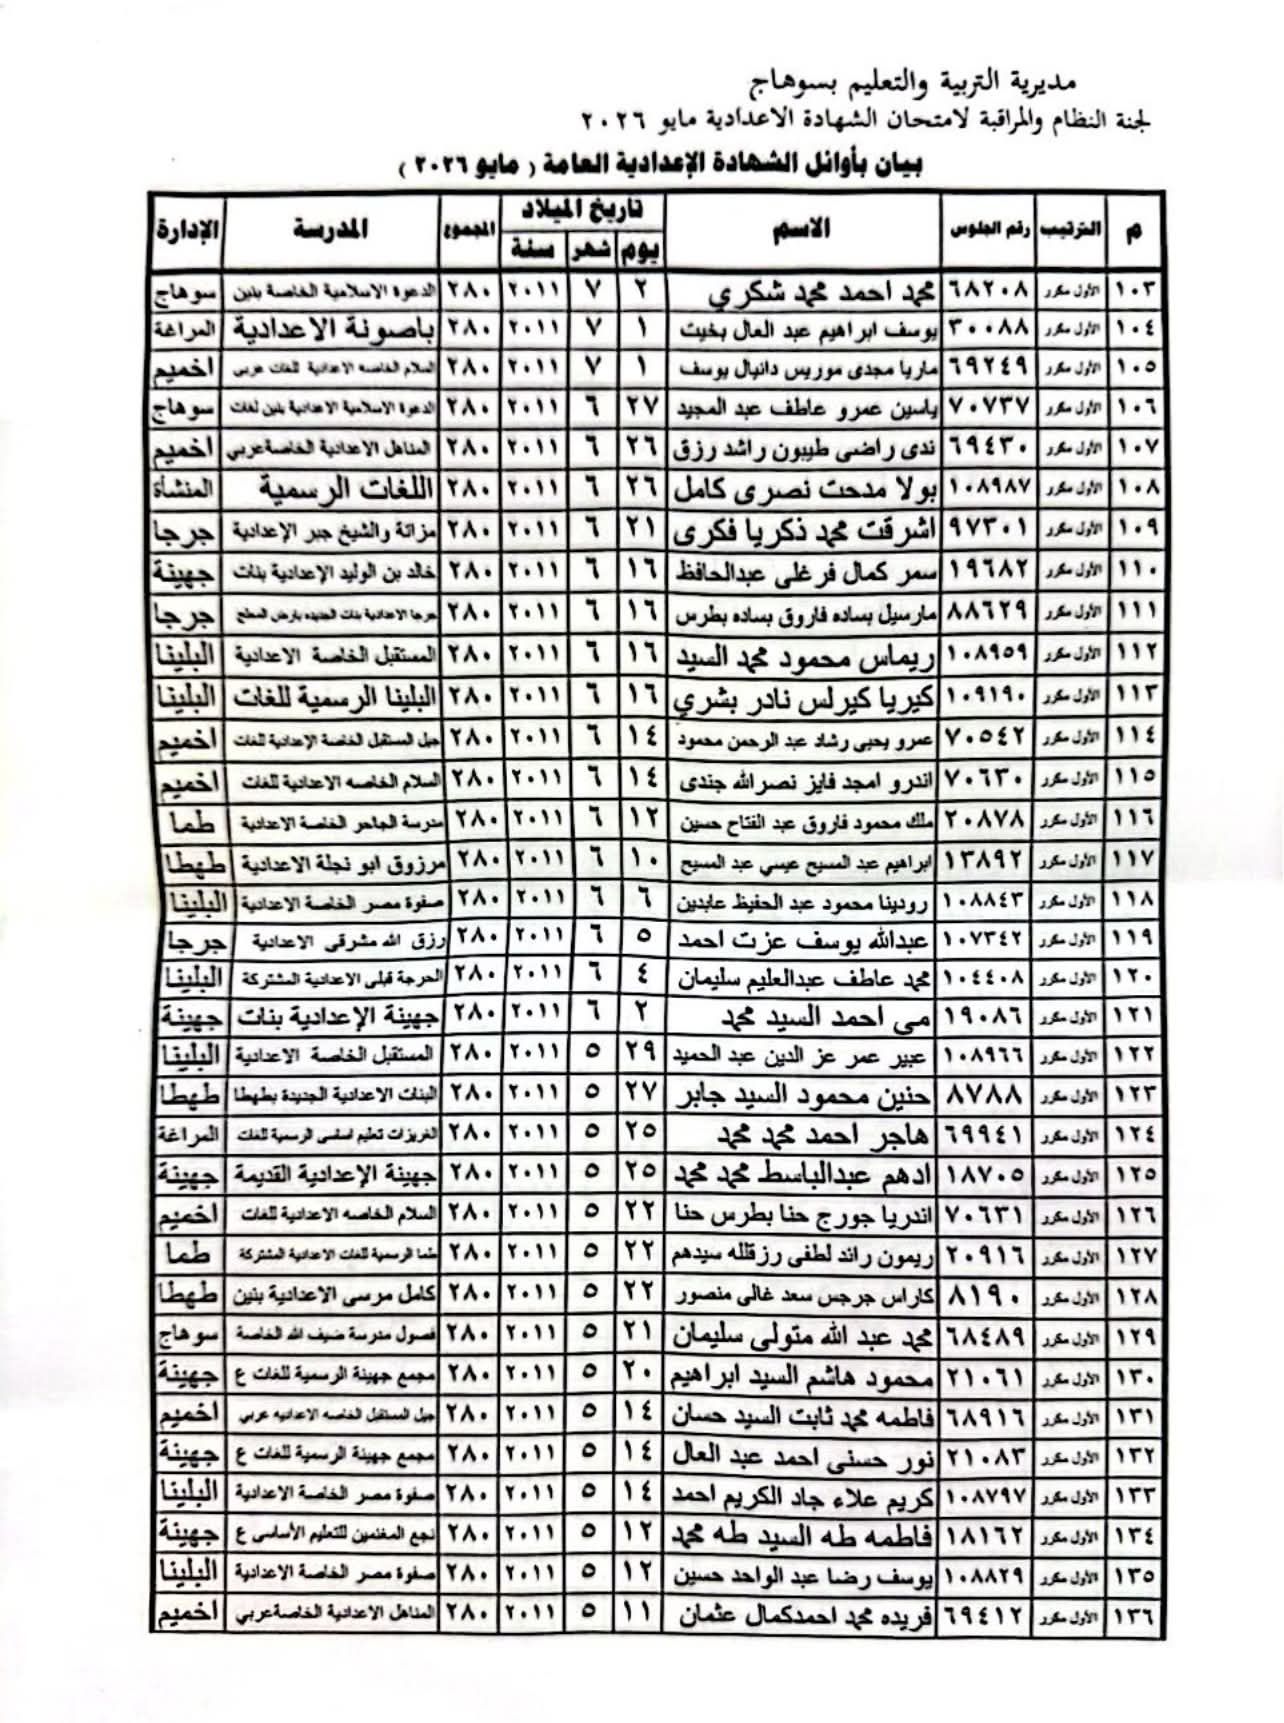 مديرية التربية والتعليم بسوهاج
لجنة النظام والمراقبة لامتحان الشهادة الاعدادية مايو ٢٠٢٦
بيان بأوائل الشهادة الإعدادية العامة ( مايو ٢٠٢٦ )
م الترتيب رقم الجلوس الاسم تاريخ الميلاد المجموع المدرسة الإدارة
يوم شهر سنة
١٠٣ الأول مكرر ٦٨٢٠٨ محمد احمد محمد شكري ٢ ٧ ٢٠١١ ٢٨٠ الدعوة الاسلامية الخاصة بنين سوهاج
١٠٤ الأول مكرر ٣٠٠٨٨ يوسف ابراهيم عبد العال بخيت ١ ٧ ٢٠١١ ٢٨٠ باصونة الاعدادية المراغة
١٠٥ الأول مكرر ٦٩٢٤٩ ماريا مجدى موريس دانيال يوسف ١ ٧ ٢٠١١ ٢٨٠ السلام الخاصه الاعدادية للغات عربى اخميم
١٠٦ الأول مكرر ٧٠٧٣٧ ياسين عمرو عاطف عبد المجيد ٢٧ ٦ ٢٠١١ ٢٨٠ الدعوة الاسلامية الاعدادية بنين لغات سوهاج
١٠٧ الأول مكرر ٦٩٤٣٠ ندى راضى طيبون راشد رزق ٢٦ ٦ ٢٠١١ ٢٨٠ المناهل الاعدادية الخاصة عربي اخميم
١٠٨ الأول مكرر ١٠٨٩٨٧ بولا مدحت نصرى كامل ٢٦ ٦ ٢٠١١ ٢٨٠ اللغات الرسمية المنشاة
١٠٩ الأول مكرر ٩٧٣٠١ اشرقت محمد ذكريا فكرى ٢١ ٦ ٢٠١١ ٢٨٠ مزاتة والشيخ جبر الإعدادية جرجا
١١٠ الأول مكرر ١٩٦٨٢ سمر كمال فرغلى عبدالحافظ ١٦ ٦ ٢٠١١ ٢٨٠ خالد بن الوليد الإعدادية بنات جهينة
١١١ الأول مكرر ٨٨٦٢٩ مارسيل بساده فاروق بساده بطرس ١٦ ٦ ٢٠١١ ٢٨٠ جرجا الاعدادية بنات الجديده بارض المطح جرجا
١١٢ الأول مكرر ١٠٨٩٥٩ ريماس محمود محمد السيد ١٦ ٦ ٢٠١١ ٢٨٠ المستقبل الخاصة الاعدادية البلينا
١١٣ الأول مكرر ١٠٩١٩٠ كيريا كيرلس نادر بشري ١٦ ٦ ٢٠١١ ٢٨٠ البلينا الرسمية للغات البلينا
١١٤ الأول مكرر ٧٠٥٤٢ عمرو يحيى رشاد عبد الرحمن محمود ١٤ ٦ ٢٠١١ ٢٨٠ جيل المستقبل الخاصة الإعدادية للغات اخميم
١١٥ الأول مكرر ٧٠٦٣٠ اندرو امجد فايز نصرالله جندى ١٤ ٦ ٢٠١١ ٢٨٠ السلام الخاصه الاعدادية للغات اخميم
١١٦ الأول مكرر ٢٠٨٧٨ ملك محمود فاروق عبد الفتاح حسين ١٢ ٦ ٢٠١١ ٢٨٠ مدرسة الجاحر الخاصة الاعدادية طما
١١٧ الأول مكرر ١٣٨٩٢ ابراهيم عبد المسيح عيسي عبد المسيح ١٠ ٦ ٢٠١١ ٢٨٠ مرزوق ابو نجلة الاعدادية طهطا
١١٨ الأول مكرر ١٠٨٨٤٣ رودينا محمود عبد الحفيظ عابدين ٦ ٦ ٢٠١١ ٢٨٠ صفوة مصر الخاصة الاعدادية البلينا
١١٩ الأول مكرر ١٠٧٣٤٢ عبدالله يوسف عزت احمد ٥ ٦ ٢٠١١ ٢٨٠ رزق الله مشرقى الاعدادية جرجا
١٢٠ الأول مكرر ١٠٤٤٠٨ محمد عاطف عبدالعليم سليمان ٤ ٦ ٢٠١١ ٢٨٠ الحرجة قبلى الاعدادية المشتركة البلينا
١٢١ الأول مكرر ١٩٠٨٦ مى احمد السيد محمد ٢ ٦ ٢٠١١ ٢٨٠ جهينة الإعدادية بنات جهينة
١٢٢ الأول مكرر ١٠٨٩٦٦ عبير عمر عز الدين عبد الحميد ٢٩ ٥ ٢٠١١ ٢٨٠ المستقبل الخاصة الاعدادية البلينا
١٢٣ الأول مكرر ٨٧٨٨ حنين محمود السيد جابر ٢٧ ٥ ٢٠١١ ٢٨٠ البنات الاعدادية الجديدة بطهطا طهطا
١٢٤ الأول مكرر ٦٩٩٤١ هاجر احمد محمد محمد ٢٥ ٥ ٢٠١١ ٢٨٠ الغريزات تعليم اساسى الرسمية للغات المراغة
١٢٥ الأول مكرر ١٨٧٠٥ ادهم عبدالباسط محمد محمد ٢٥ ٥ ٢٠١١ ٢٨٠ جهينة الإعدادية القديمة جهينة
١٢٦ الأول مكرر ٧٠٦٣١ اندريا جورج حنا بطرس حنا ٢٢ ٥ ٢٠١١ ٢٨٠ السلام الخاصه الاعدادية للغات اخميم
١٢٧ الأول مكرر ٢٠٩١٦ ريمون رائد لطفى رزقلله سيدهم ٢٢ ٥ ٢٠١١ ٢٨٠ طما الرسمية للغات الاعدادية المشتركة طما
١٢٨ الأول مكرر ٨١٩٠ كاراس جرجس سعد غالى منصور ٢٢ ٥ ٢٠١١ ٢٨٠ كامل مرسى الاعدادية بنين طهطا
١٢٩ الأول مكرر ٦٨٤٨٩ محمد عبد الله متولى سليمان ٢١ ٥ ٢٠١١ ٢٨٠ فصول مدرسة ضيف الله الخاصة سوهاج
١٣٠ الأول مكرر ٢١٠٦١ محمود هاشم السيد ابراهيم ٢٠ ٥ ٢٠١١ ٢٨٠ مجمع جهينة الرسمية للغات ع جهينة
١٣١ الأول مكرر ٦٨٩١٦ فاطمه محمد ثابت السيد حسان ١٤ ٥ ٢٠١١ ٢٨٠ جيل المستقبل الخاصه الاعداديه عربي اخميم
١٣٢ الأول مكرر ٢١٠٨٣ نور حسنى احمد عبد العال ١٤ ٥ ٢٠١١ ٢٨٠ مجمع جهينة الرسمية للغات ع جهينة
١٣٣ الأول مكرر ١٠٨٧٩٧ كريم علاء جاد الكريم احمد ١٤ ٥ ٢٠١١ ٢٨٠ صفوة مصر الخاصة الاعدادية البلينا
١٣٤ الأول مكرر ١٨١٦٢ فاطمه طه السيد طه محمد ١٢ ٥ ٢٠١١ ٢٨٠ نجع المغنمين للتعليم الأساسى ع جهينة
١٣٥ الأول مكرر ١٠٨٨٢٩ يوسف رضا عبد الواحد حسين ١٢ ٥ ٢٠١١ ٢٨٠ صفوة مصر الخاصة الاعدادية البلينا
١٣٦ الأول مكرر ٦٩٤١٢ فريده محمد احمدكمال عثمان ١١ ٥ ٢٠١١ ٢٨٠ المناهل الاعدادية الخاصة عربي اخميم